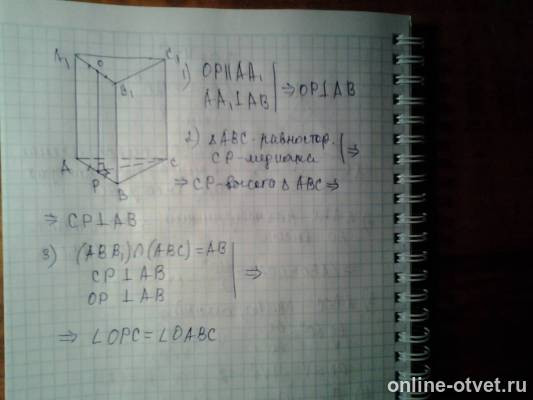 A₁ C₁
O
B₁
A C
P
B
1) OP∥AA₁
AA₁⊥AB ⇒ OP⊥AB
2) ΔABC - равностор.
CP - медиана ⇒
⇒ CP - высота ΔABC ⇒
⇒ CP⊥AB
3) (ABB₁)∩(ABC)=AB
CP⊥AB
OP⊥AB ⇒
⇒ ∠OPC=∠OABC
online-otvet.ru